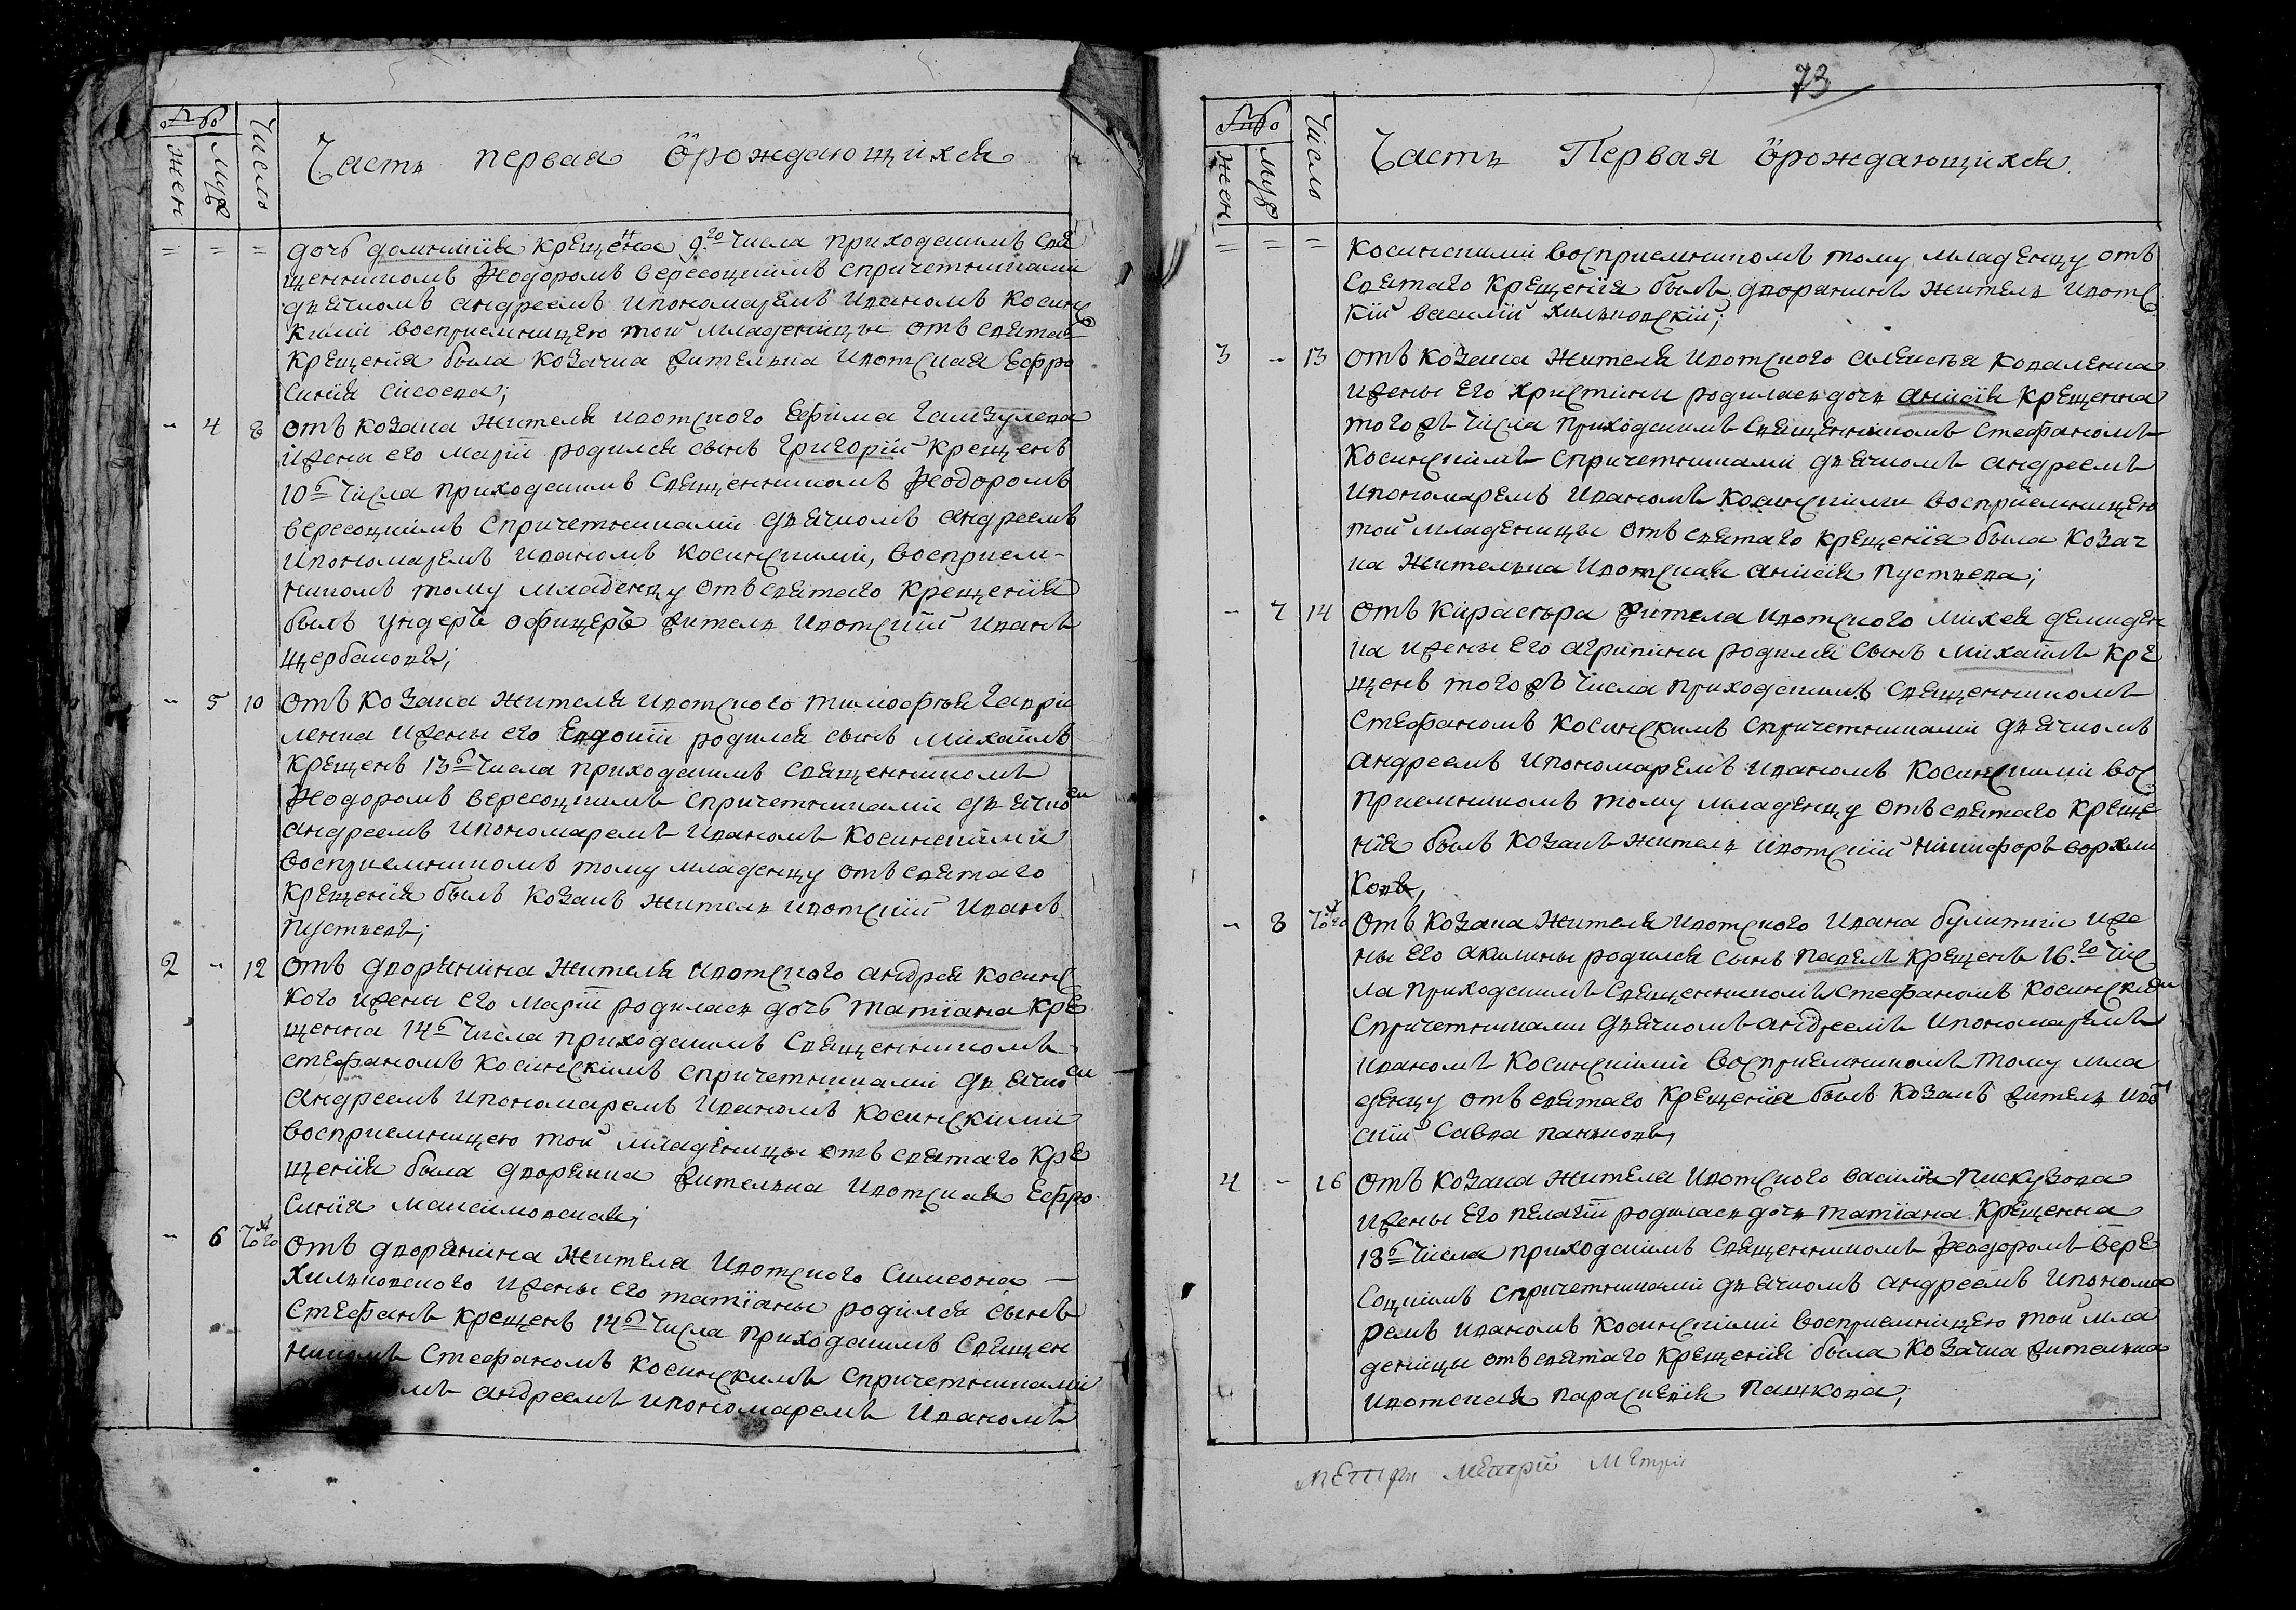 Часть первая о рождающихся
Число
Муж
Жен
= = = дочь домникия крещенна 9го числа приходскимъ свя
щенникомъ Феодоромъ Вересоцкимъ спричетниками
дьячкомъ андреемъ ипономаремъ иваномъ косинс
кими восприемницею той младеницы отъ святаго
крещения была козачка жителька ивотская Ефро
синия сисоева;
- 4 8 отъ козака жителя ивотского Ефима
ижены его марїи родился сынъ григорий крещенъ
10го числа приходскимъ священникомъ Феодоромъ
вересоцкимъ спричетниками дьячкомъ андреемъ
ипономаремъ иваномъ косинскими, восприем-
никомъ тому младенцу отъ святаго крещенїя
былъ ундеръ офицеръ житель ивотский иванъ
щербаковъ;
- 5 10 отъ козака жителя ивотского тимофея гаври
ленка ижены его Евдокїи родился сынъ михаилъ
крещенъ 13го числа приходскимъ священникомъ
Феодоромъ вересоцкимъ спричетниками дьячком
андреемъ ипономаремъ иваномъ косинскими
восприемникомъ тому младенцу отъ святаго
крещенїя былъ козакъ житель ивотский иванъ
пустъевъ;
2 - 12 отъ дворянина жителя ивотского андрея косинс
кого ижены его марїи родилась дочь татїана кре
щенна 14го числа приходскимъ священникомъ
стефаномъ косинскимъ спричетниками дьячком
андреемъ ипономаремъ иваномъ косинскими
восприемницею той младеницы отъ святаго кре
щенїя была дворянка жителька ивотская Ефро
синїя максимовская;
- 6 того отъ дворянина жителя ивотского симеона
хильковского ижены его татїаны родился сынъ
стефанъ крещенъ 14го числа приходскимъ священ
никомъ стефаномъ косинскимъ спричетниками
андреемъ ипономаремъ иваномъ
73
Часть Первая о рождающихся
Число
Муж
Жен
= = = косинскими восприемникомъ тому младенцу отъ
святаго крещенїя былъ дворянинъ житель ивотс
кїй василий хильковскїй;
3 - 13 отъ козака жителя ивотского алексея коваленка
ижены его христины родилась дочь анисїя крещенна
тогожъ числа приходскимъ священникомъ стефаномъ
косинскимъ спричетниками дьячкомъ андреемъ
ипономаремъ иваномъ косинскими восприемницею
той младеницы отъ святаго крещенїя была козач
ка жителька ивотская анисїя пустъева;
- 7 14 отъ кирасира жителя ивотского михея демиден
ка ижены его агрипины родился сынъ михаилъ кре
щенъ тогожъ числа приходскимъ священникомъ
стефаномъ косинскимъ спричетниками дьячкомъ
андреемъ ипономаремъ иваномъ косинскими вос
приемникомъ тому младенцу отъ святаго креще
нїя былъ козакъ житель ивотский никифоръ
ковъ;
- 8 того отъ козака жителя ивотского ивана ижe
ны его акилины родился сынъ павелъ крещенъ 16го чис
ла приходскимъ священникомъ стефаномъ косинским
спричетниками дьячкомъ андреемъ ипономаремъ
иваномъ косинскими восприемникомъ тому мла
денцу отъ святаго крещенїя былъ козакъ житель ивот
ский савва паньковъ;
4 - 16 отъ козака жителя ивотского василия пискузова
ижены его пелагїи родилась дочь татїана крещенна
18го числа приходскимъ священникомъ Феодоромъ вере
соцкимъ спричетниками дьячкомъ андреемъ ипонома
ремъ иваномъ косинскими восприемницею той мла
деницы отъ святаго крещенїя была козачка жителька
ивотская параскевїя пашкова;